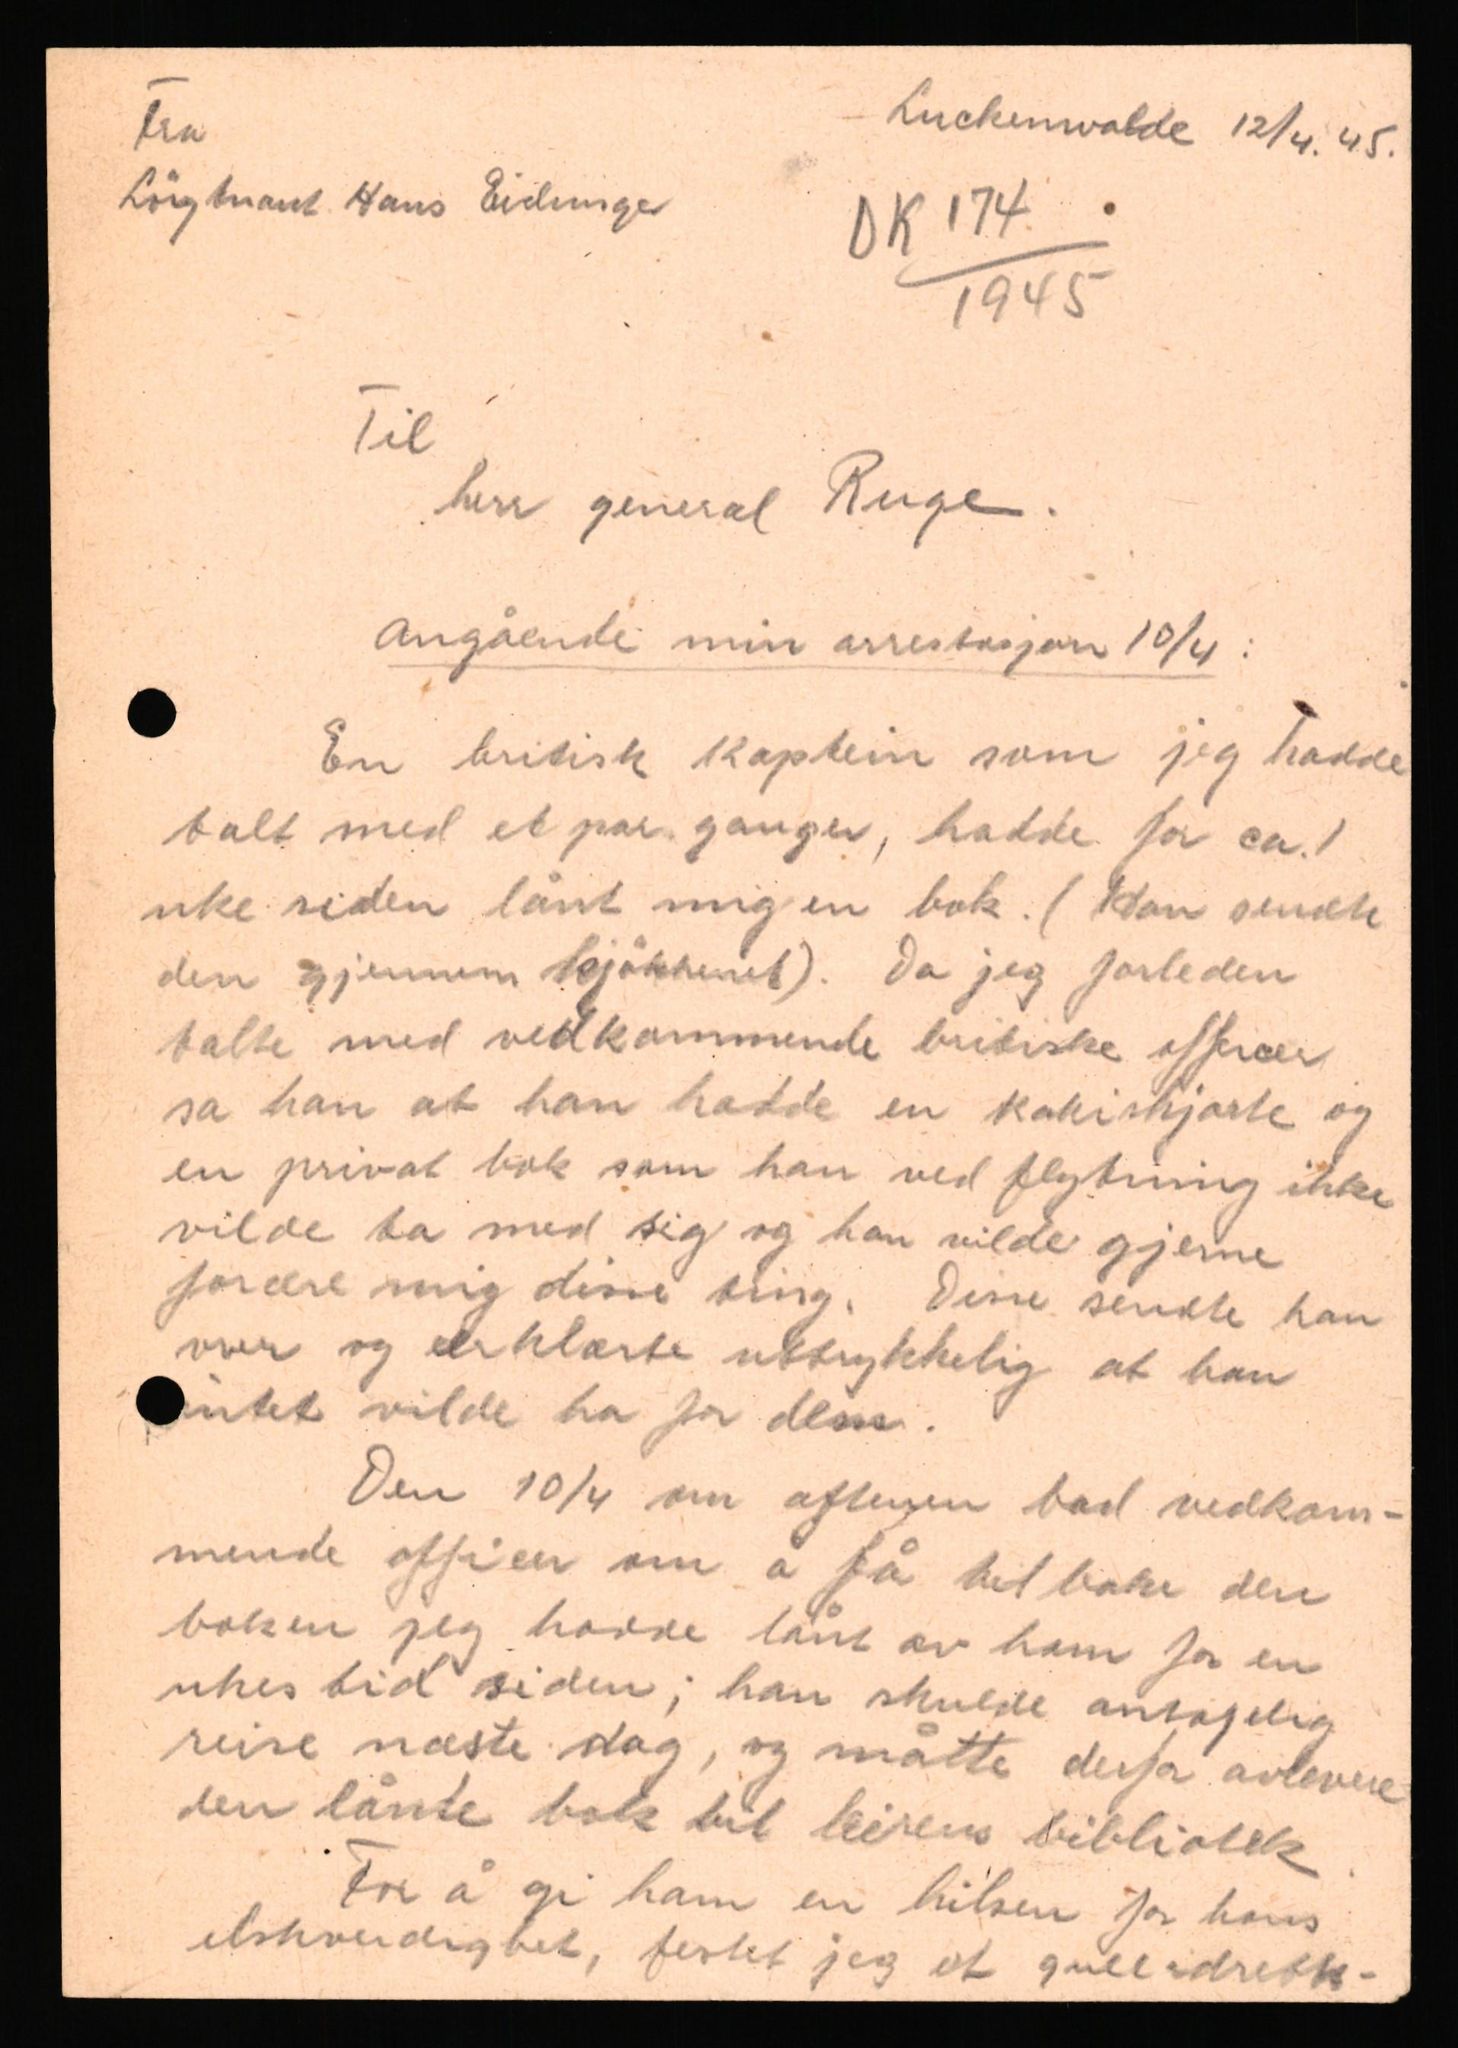 Fra
Luckenwalde 12/4. 45.
Löytnant Hans Eidunger
DK 174
1945
Til
herr general Ruge.
Angående min arrestasjon 10/4:
En britisk kaptein som jeg hadde
talt med et par ganger, hadde for ca. 1
uke siden lånt mig en bok. (Han sendte
den gjennem kjökkenet). Da jeg forleden
talte med vedkommende britiske officer
sa han at han hadde en kakiskjorte og
en privat bok som han ved flytning ikke
vilde ta med sig og han vilde gjerne
forære mig disse ting. Disse sendte han
over og erklærte uttrykkelig at han
intet vilde ha for dem.
Den 10/4 om aftenen bad vedkom-
mende officer om å få tilbake den
boken jeg hadde lånt av ham for en
ukes tid siden; han skulde antagelig
reise næste dag, og måtte derfor avlevere
den lånte bok til leirens bibliotek.
For å gi ham en hilsen for hans
elskverdighet, festet jeg et gull idretts-